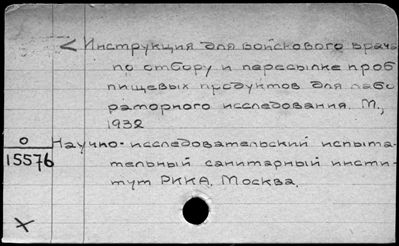 < Инструкция для войскового врача
по отбору и пересылке проб
пищевых продуктов для лабо
раторного исследования. М.,
1932
О
15576
Научно-исследовательский испыта-
тельный санитарный инсти-
тут РККА. Москва.
X